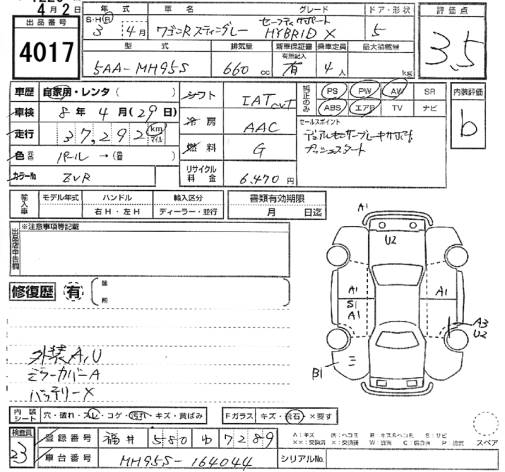 4月2日
出品番号
4017
年式 車名 グレード ドア・形状 評価点
S・H・R 3年4月 ワゴンRスティングレー セーフティサポート HYBRID X 5 3.5
型式 排気量 新車保証書 乗車定員 最大積載量
有無記入
5AA-MH95S 660cc 有 4人 kg
車歴 自家用・レンタ( ) シフト IAT PS PW AW SR 内装評価
車検 8年4月(29日) 純正品のみ ABS エアB TV ナビ b
走行 37,292 km マイル 冷房 AAC セールスポイント
デュアルセンサーブレーキサポート
プッシュスタート
燃料 G
色 パール→( )
カラーNo ZVR リサイクル料金 6,470円
輸入車 モデル年式 ハンドル 輸入区分 書類有効期限
年 右H・左H ディーラー・並行 月 日迄
出品店申告欄 ※注意事項等記載
修復歴 有
箇所
外装A,U
ミラーカバーA
バッテリーX
A1
U2
A1
S1
A1
A1
A3
U2
B1
内装シート 穴・破れ・スレ・コゲ・汚れ・キズ・黄ばみ Fガラス キズ・飛石・×要す
検査員 23
登録番号 福井 580 ゆ 7289
車台番号 MH95S-164044 シリアルNo.
スペア